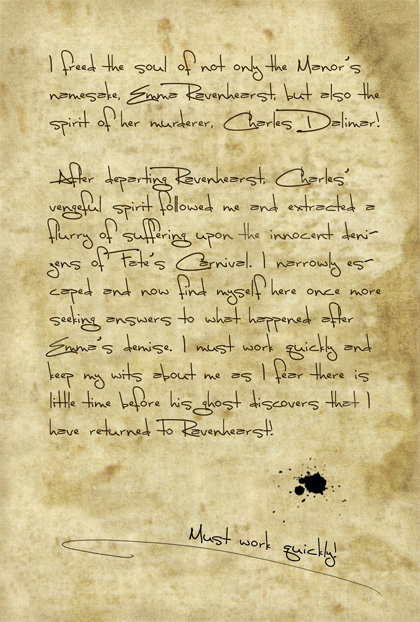 I freed the soul of not only the Manor's
namesake, Emma Ravenhearst, but also the
spirit of her murderer, Charles Dalimar!
After departing Ravenhearst, Charles'
vengeful spirit followed me and extracted a
flurry of suffering upon the innocent deni-
zens of Fate's Carnival. I narrowly es-
caped and now find myself here once more
seeking answers to what happened after
Emma's demise. I must work quickly and
keep my wits about me as I fear there is
little time before his ghost discovers that I
have returned to Ravenhearst!
Must work quickly!